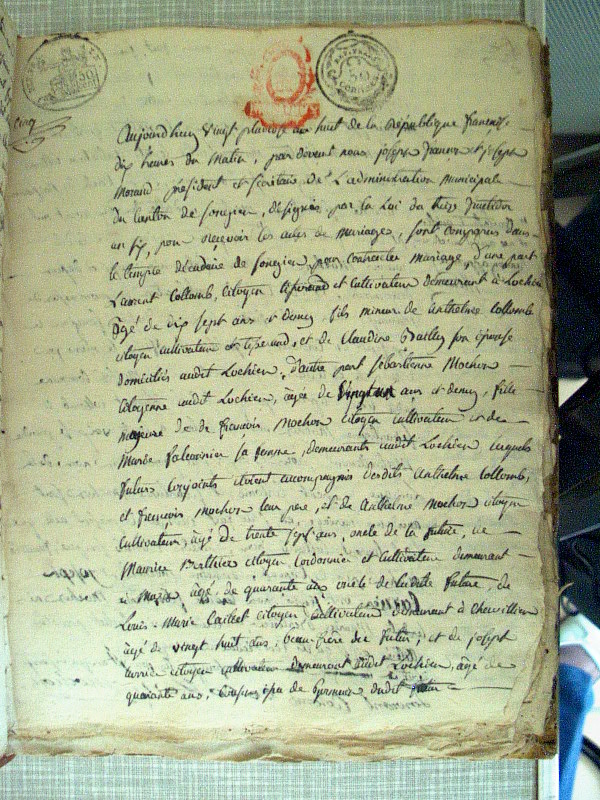 cinq
Aujourdhuy vingt pluviose an huit de la République francoise
dix heures du Matin, par devant nous joseph et joseph
Morand président et secrétaire de L'administration municipale
du Canton de Songieu, désignés par la Loi du treize fructidor
an six, pour recevoir les actes de mariage, sont comparus dans
le temple décadaire de songieu pour contracter mariage, d'une part
Laurent Collomb, citoyen tisserand et cultivateur demeurant à Lochieu
âgé de dix sept ans et demy, fils mineur de anthelme Collomb
citoyen cultivateur et tisserand, et de Claudine Bailly son épouse
domiciliés audit Lochieu, d'autre part sébastienne Mochon
Citoyenne audit Lochieu, âgée de vingt un ans et demy, fille
majeure de de francois Mochon citoyen cultivateur et de
Marie sa femme, demeurants audit Lochieu lesquels
futurs conjoints étoient accompagnés desdits anthelme Collomb,
et françois Mochon leur pere, et de anthelme Mochon citoyen
Cultivateur, agé de trente sept ans, oncle de la future, de
Maurice citoyen Cordonnier et cultivateur demeurant
à agé de quarante ans de ladite future, de
Louis-Marie Caillet citoyen Cultivateur demeurant à
agé de vingt huit ans, beau-frère du futur, et de joseph
citoyen cultivateur demeurant audit Lochieu, âgé de
quarante ans, Cousin de dudit futur